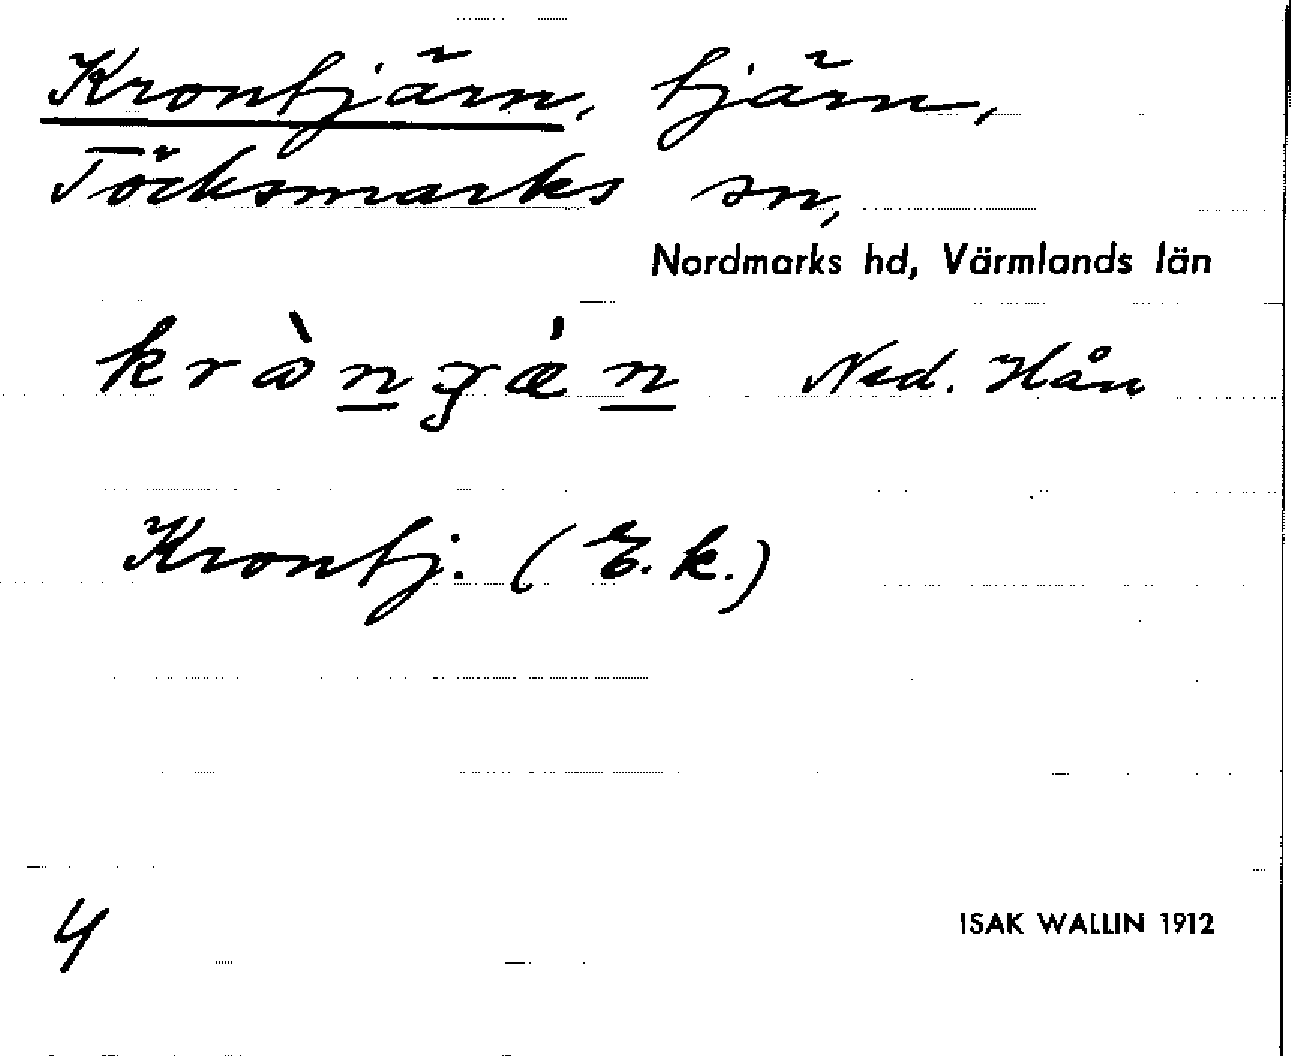 Krontjärn, tjärn,
Töcksmarks sn,
Nordmarks hd, Värmlands län
kràngǽn Ned. Hån
Krontj. (E.k.)
4
ISAK WALLIN 1912